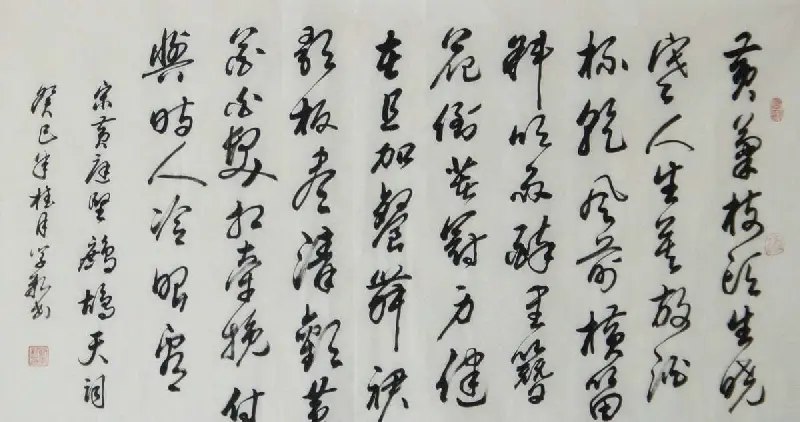 黄菊枝头生晓
寒人生莫放酒
杯乾风前横笛
斜吹雨醉里簪
花倒著冠身健
在且加餐舞裙
歌板尽清欢黄
花白发相牵挽付
与时人冷眼看
宋黄庭坚鹧鸪天词
癸巳年桂月